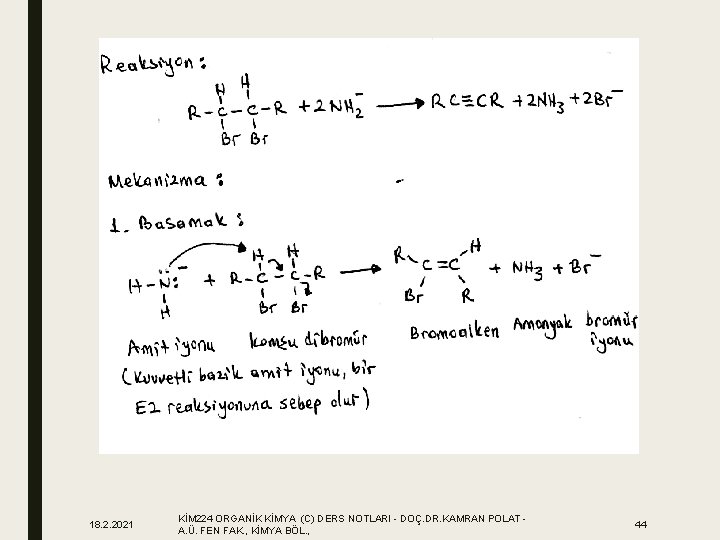 Reaksiyon:
H H
R-C-C-R + 2NH₂⁻ → RC≡CR + 2NH₃ + 2Br⁻
Br Br
Mekanizma:
1. Basamak:
H-N̈:⁻ + R-C-C-R → R C=C H + NH₃ + Br⁻
H H H Br Br Br R
Amit iyonu komşu dibromür Bromoalken Amonyak bromür iyonu
(Kuvvetli bazik amit iyonu, bir
E2 reaksiyonuna sebep olur)
18.2.2021
KİM224 ORGANİK KİMYA (C) DERS NOTLARI - DOÇ.DR.KAMRAN POLAT -
A.Ü. FEN FAK., KİMYA BÖL.,
44